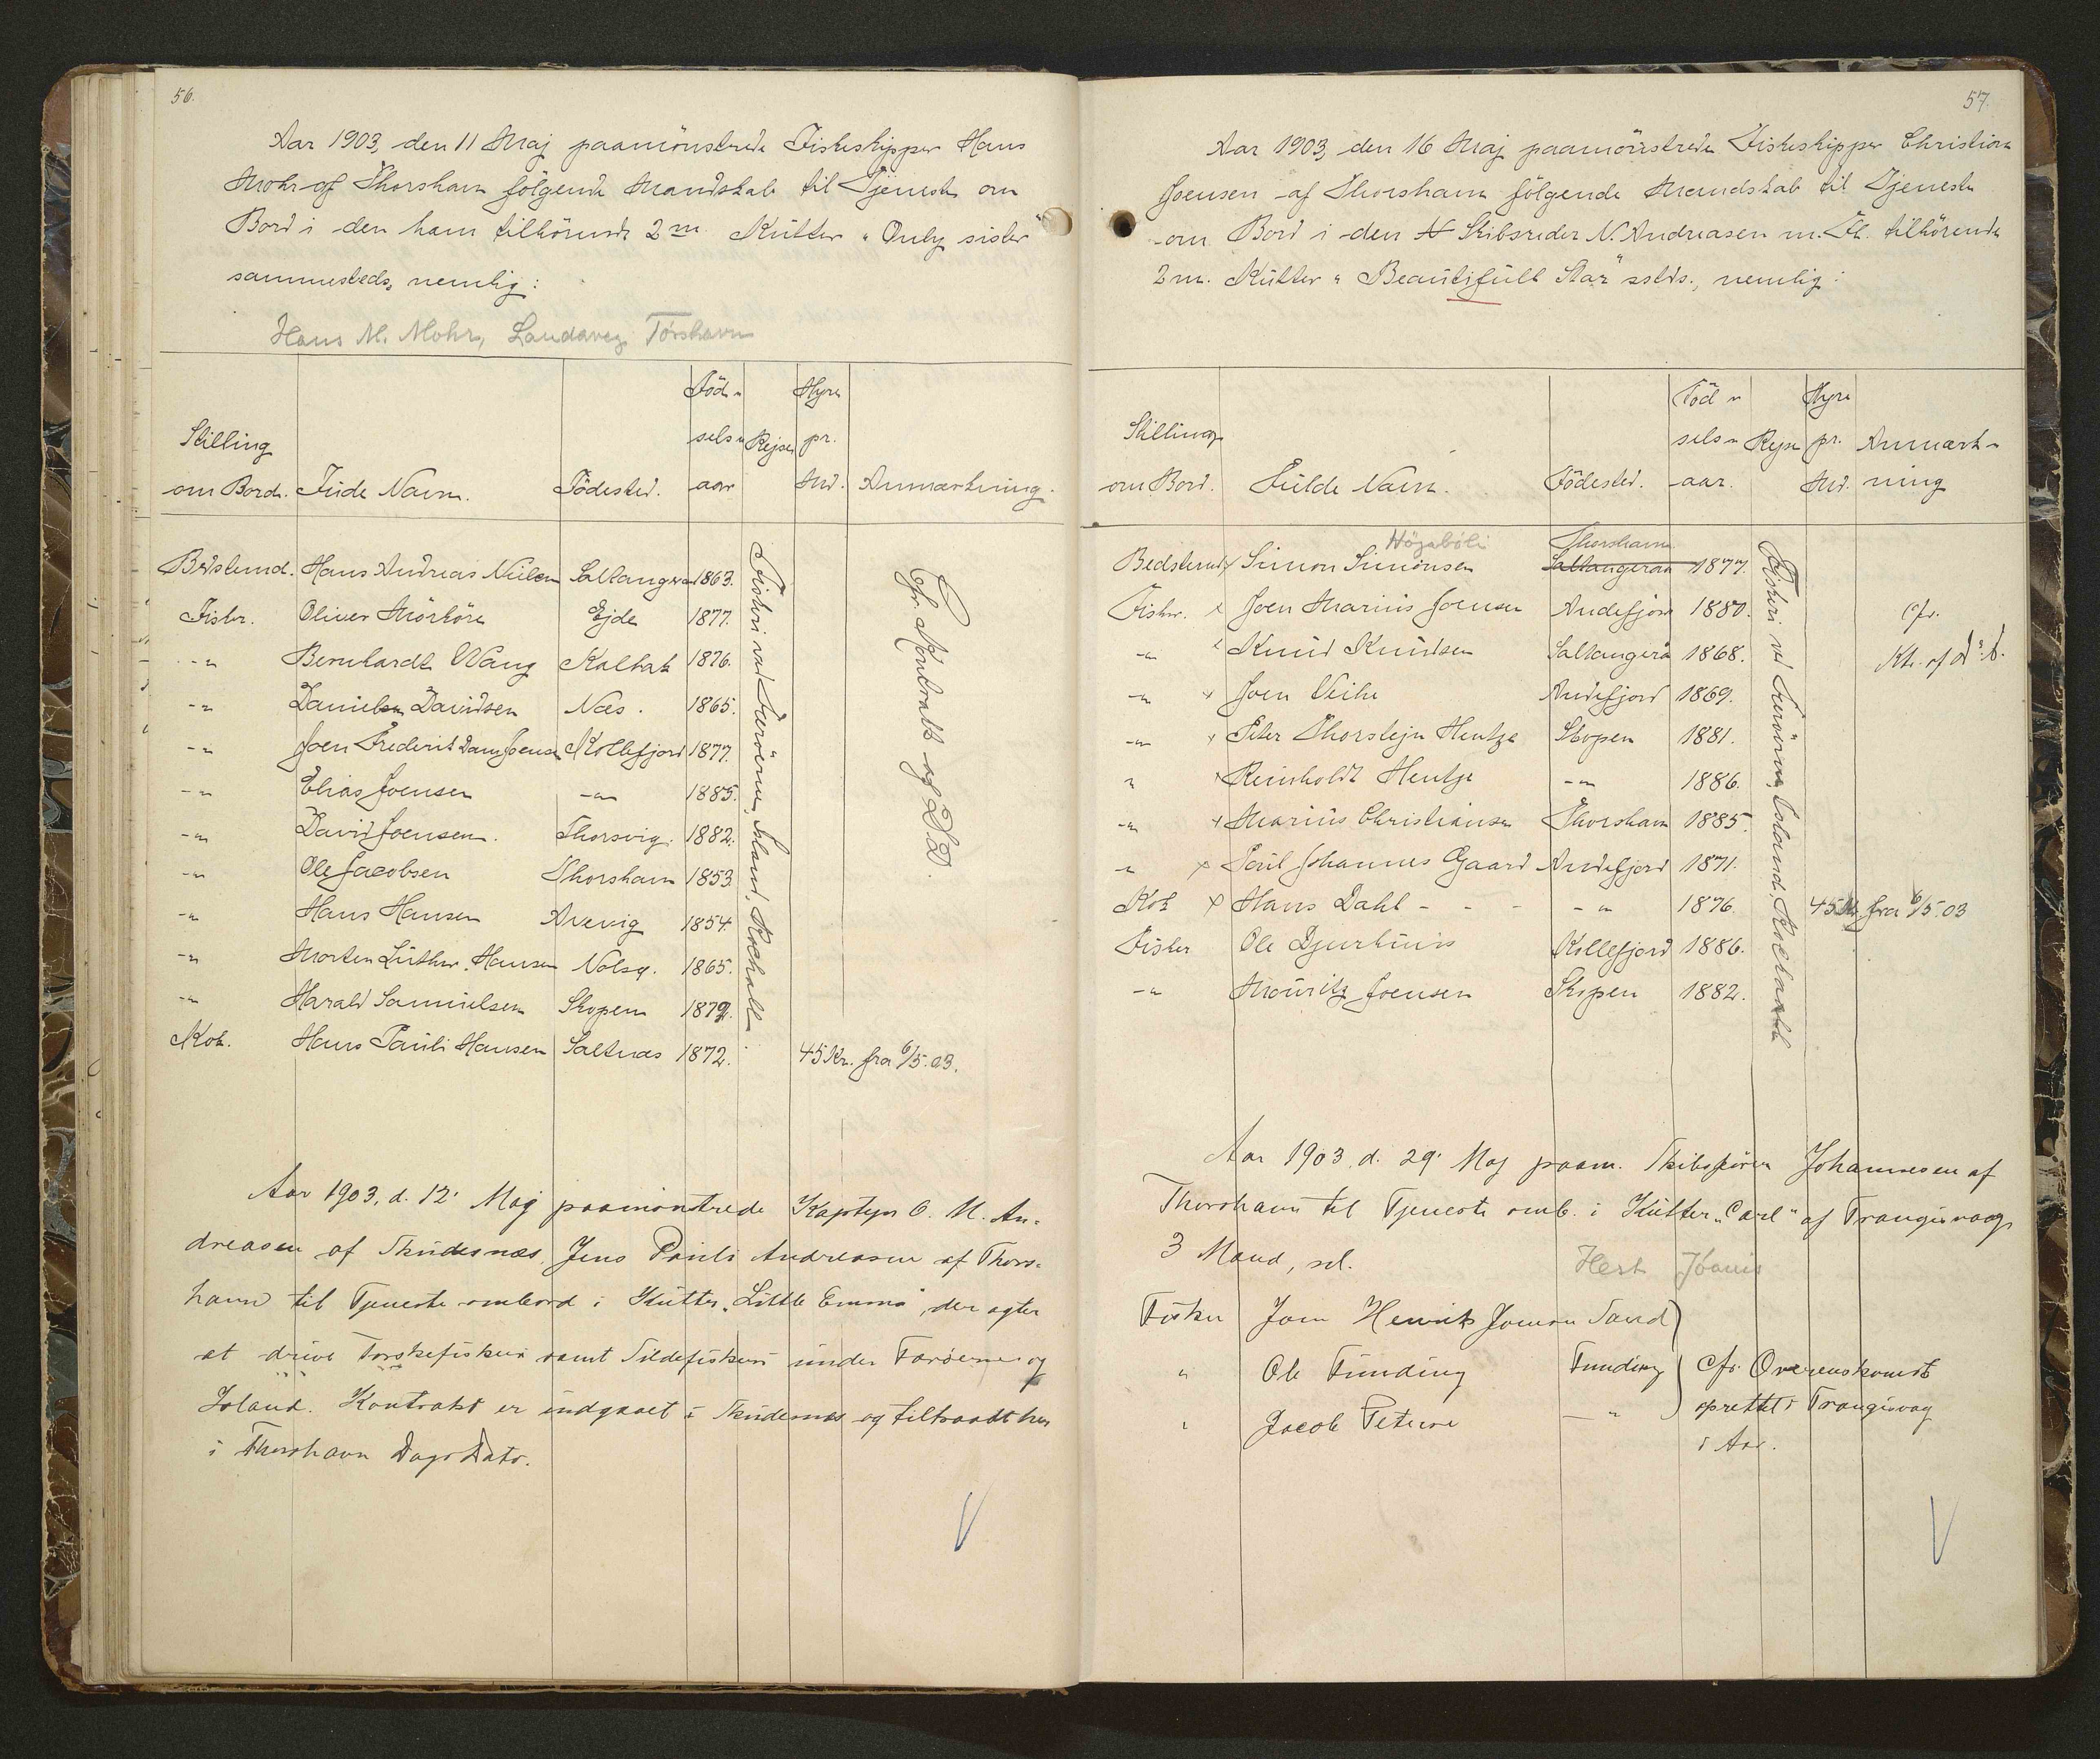 56.
Aar 1903, den 11 Maj paamönstrede Fiskeskipper Hans
Mohr af Thorshavn fölgende Mandskab til Tjeneste om
Bord i den ham tilhörende 2 m. Kutter "Only sister"
sammesteds, nemlig:
Hans M. Mohr, Landaveg Tórshavn
Stilling om Bord. Fude Navn. Födested. Föd-sels-aar Rejse Hyre pr. Md. Anmærkning.
Bedstemd. Hans Andreas Nielsen Saltangeraa 1863.
Fisker. Oliver Mörköre Ejde 1877.
-"- Bernhardt Wang Kalbak 1876.
-"- Daniel Davidsen Næs. 1865.
-"- Joen Frederik Dam Joensen Kollefjord 1877.
-"- Elias Joensen -"- 1885.
-"- David Joensen. Thorsvig. 1882.
-"- Ole Jacobsen Thorshavn 1853.
-"- Hans Hansen Arevig 1854.
-"- Morten Luther Hansen Nolsø. 1865.
-"- Harald Samuelsen Skopen 1879.
Kok. Hans Pauli Hansen Saltnæs 1872. 45 Kr. fra 6/5.03.
Fiskeri ved Færöerne, Island, Rockall
Cfr. Kontrakt af D.D.
Aar 1903, d. 12' Maj paamönstrede Kaptejn O. M. An-
dreasen af Skudesnæs, Jens Pauli Andreasen af Thors-
havn til Tjeneste ombord i Kutter "Little Emma", der agter
at drive Torskefiskeri samt Sildefiskeri under Færöerne og
Island. Kontrakt er indgaaet i Skudesnæs og tiltraadt her
i Thorshavn Dags Dato.
57.
Aar 1903, den 16 Maj paamönstrede Fiskeskipper Christian
Joensen af Thorshavn fölgende Mandskab til Tjeneste
om Bord i den N Skibsreder N. Andreasen m. Fl. tilhörende
2 m. Kutter "Beautifull Star" sstds., nemlig:
Stilling om Bord. Fulde Navn. Födested. Föd-sels-aar. Rejse Hyre pr. Md. Anmærk-ning
Högabóli Thorshavn
Bedstemd. x Simon Simonsen Saltangeraa 1877.
Fisker. x Joen Marius Joensen Andefjord 1880. Cfr.
-"- x Knud Knudsen Saltangerå 1868. Ktr. af d. D.
-"- x Joen Veihe Andefjord 1869.
-"- x Peter Thorstejn Hentze Skopen 1881.
" x Reinholdt Hentze -"- 1886.
-"- x Marius Christiansen Thorshavn 1885.
-"- x Poul Johannes Gaard Andefjord 1871.
Kok x Hans Dahl - - - -"- 1876. 45 Kr fra 6/5.03
Fisker Ole Djurhuus Kollefjord 1886.
-"- Mouritz Joensen Skopen 1882.
Fiskeri ved Færöerne, Island, Rockall
Aar 1903, d. 29' Maj paam. Skibsförer Johannesen af
Thorshavn til Tjeneste omb. i Kutter "Carl" af Trangisvaag
3 Mand, nl.
Hest Jóanis
Fisker Joen Henrik Joensen Sand
" Ole Funding Funding Cfr. Overenskomst
" Jacob Petersen -"- oprettet i Trangisvag
i Aar.